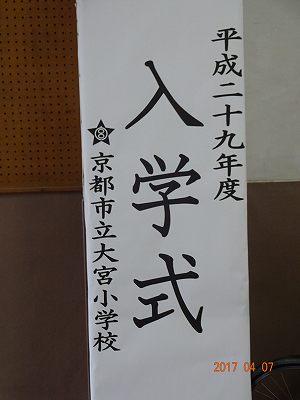 平成二十九年度
入学式
京都市立大宮小学校
2017 04 07